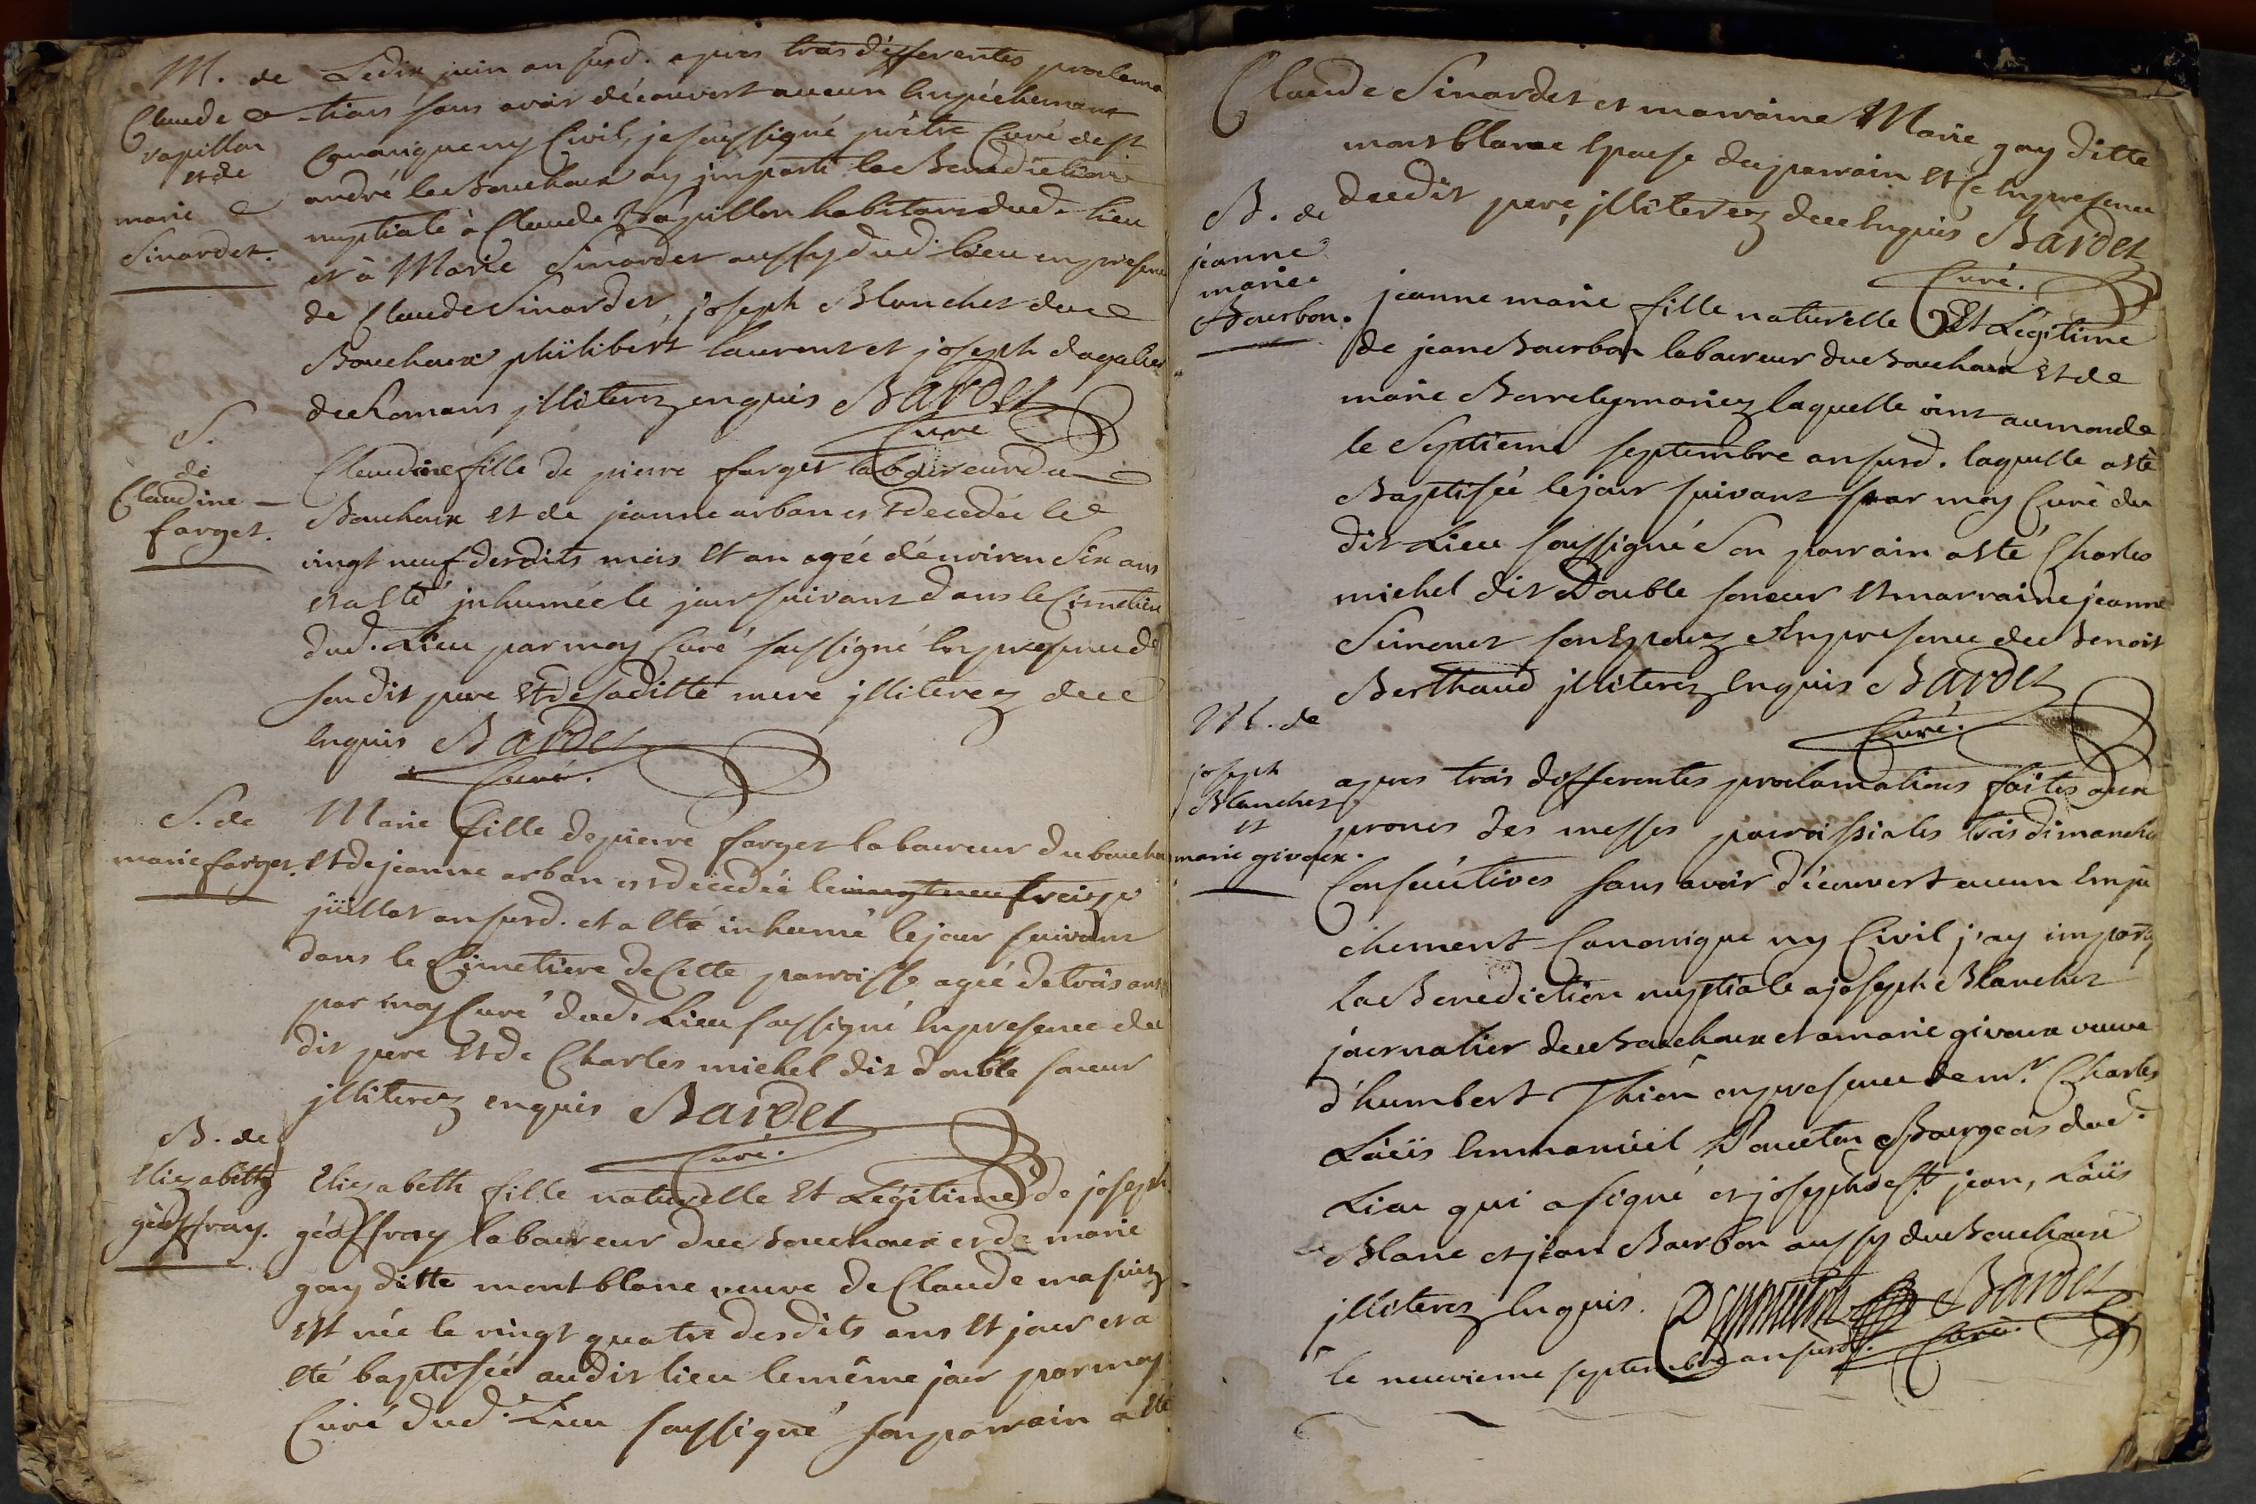 M. de
Claude
rapillon
et de
marie
Sinardet.
Le dix juin an susd. apres trois differentes proclama
-tions sans avoir découvert aucun Empéchement
Canonique ny Civil, je soussigné prêtre Curé de st
andré le Bouchoux ay imparti la Benediction
nuptiale à Claude Rapillon habitant dud. lieu
et à Marie Sinardet aussy dud. lieu en presence
de Claude Sinardet, joseph Blanchet du
Bouchoux philibert laurent et joseph dagalier
de Romans jlliterez enquis Bardet
Curé
S.
de
Claudine
farget.
Claudine fille de pierre farget laboureur du
Bouchoux et de jeanne arban est decedée le
vingt neuf desdits mois et an agée d'environ six ans
et a eté inhumée le jour suivant dans le Cimetiere
dud. Lieu par moy Curé soussigné En presence de
son dit pere et de saditte mere jlliterez de ce
Enquis Bardet
Curé.
S. de
marie farget.
Marie fille de pierre farget laboureur du bouchoux
et de jeanne arban est decedée le vingt neuf treize
jüillet an susd. et a eté inhumé le jour suivant
dans le Cimetiere de Cette parroisse agée de trois ans
par moy Curé dud. Lieu soussigné En presence du
dit pere et de Charles michel dit double soneur
jlliterez enquis Bardet
Curé.
B. de
Elizabeth
géoffray.
Elizabeth fille naturelle et Légitime de joseph
géoffray laboureur du Bouchoux et de marie
gay ditte montblanc veuve de Claude masuiez
est née le vingt quatre desdits ans et jour et a
eté baptisée audit lieu le même jour par moy
Curé dud. Lieu soussigné son parrain a eté
Claude Sinardet et marraine Marie gay ditte
montblanc Epouse du parrain et ce En presence
dudit pere, jlliterez de ce Enquis Bardet
Curé.
B. de
jeanne
marie
Bourbon.
jeanne marie fille naturelle Et Légitime
de jean Bourbon laboureur du Bouchoux et de
marie Borrely mariez laquelle vint au monde
le Septieme septembre an susd. laquelle a eté
Baptisée le jour suivant par moy Curé du
dit Lieu soussigné Son parrain a eté Charles
michel dit Double soneur et marraine jeanne
Simonet son Epouze En presence de Benoit
Berthaud jlliterez Enquis Bardet
Curé.
M. de
joseph
Blanchet
et
marie givoux.
apres trois differentes proclamations faites aux
prones des messes parroissiales trois dimanches
Consecutives sans avoir découvert aucun Empê
chement Canonique ny Civil j'ay imparty
la Benediction nuptiale a joseph Blanchet
journalier du Bouchoux et a marie givoux veuve
d'humbert Thien en presence de mr. Charles
Loüis Emmanüel Poncetton Bourgeois dud.
Lieu qui a signé et joseph de st. jean, Loüis
Blanc et jean Bourbon aussy du Bouchoux
jlliterez Enquis. Bardet
Curé.
le neuvieme septembre an susd.